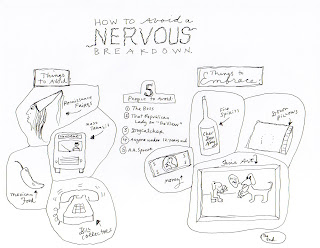 HOW TO Avoid a
NERVOUS
BREAKDOWN.
Things to
Avoid
Renaissance
Faires
mass
Transit
mexican
Food
Bill
Collectors
5
People to Avoid
① The Boss
② That Republican
Lady on "The View"
③ Dogcatcher
④ Anyone under 12 years old
⑤ A.A. Sponsor
Things to
Embrace
Fine
Spirits
Down
Pillows
money
Fine Art